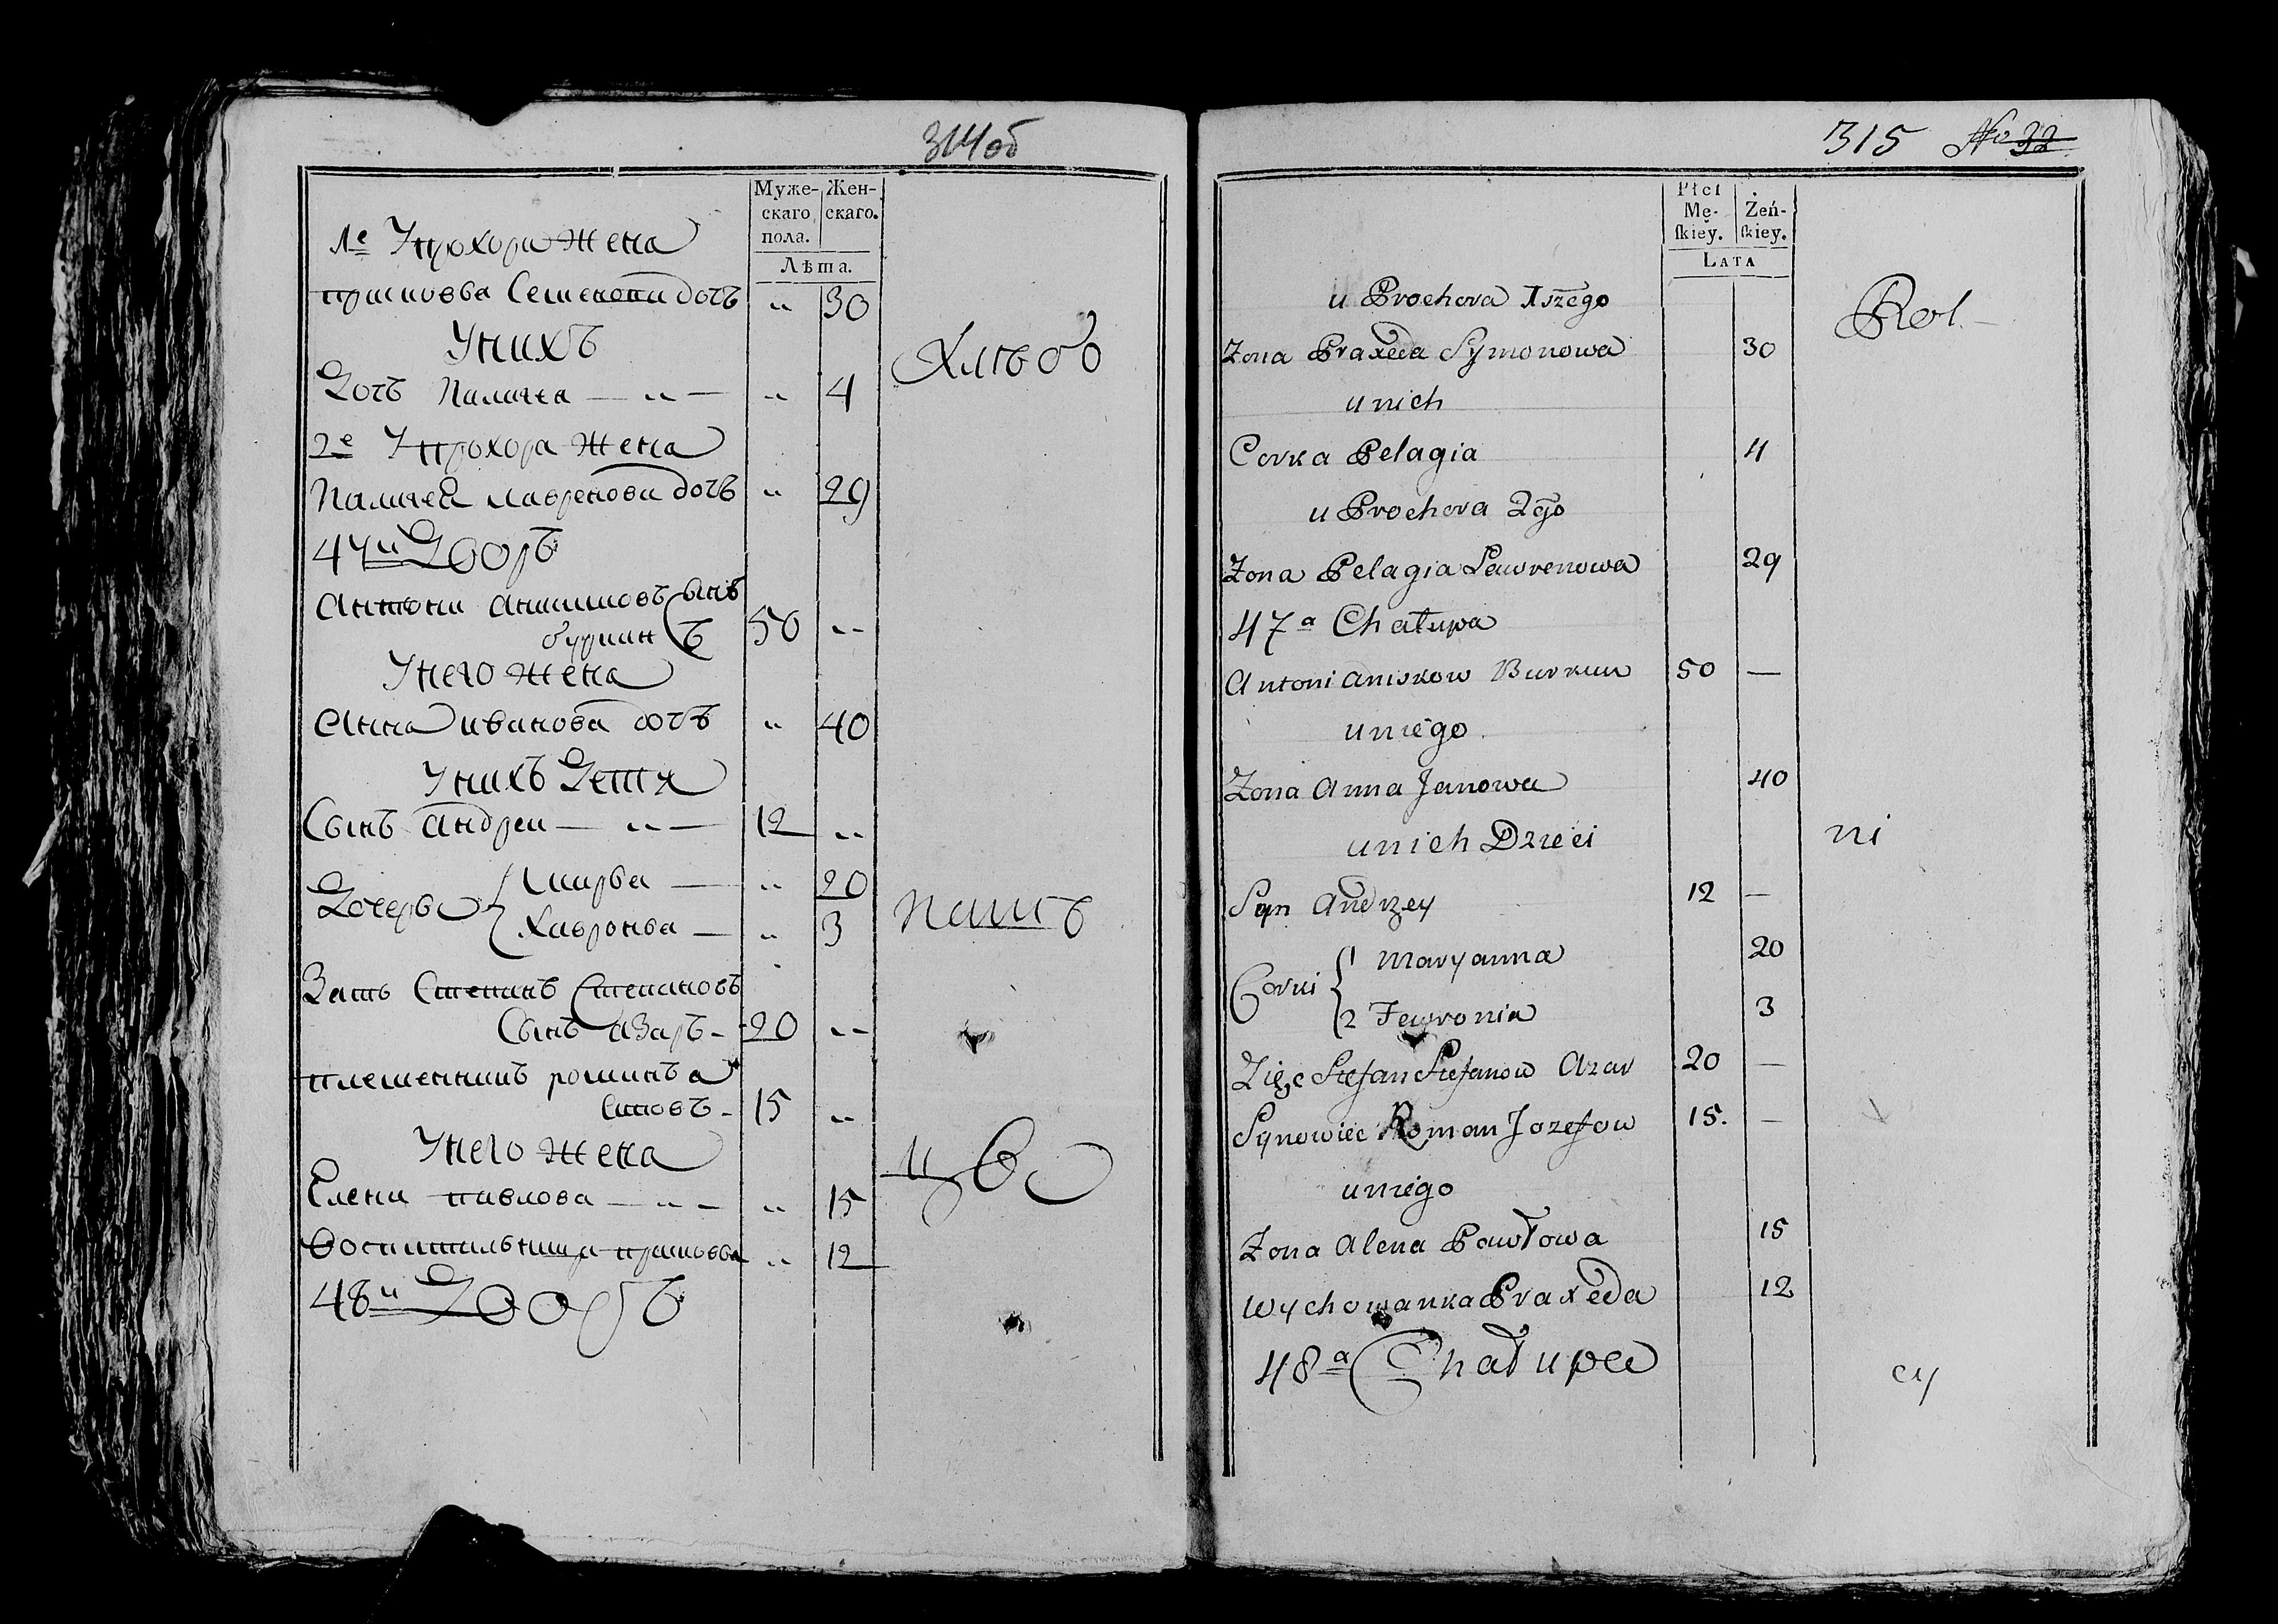 314об
Муже- Жен-
скаго скаго.
пола.
Лѣта.
1е У прохора жена
прасковья Семенова дочь " 30
У нихъ
Дочь Палагея — " — " 4
2е У прохора жена
Палагея лавренова дочь " 29
47й Дворъ
Антони анисковъ сынъ
буркинъ 50 "
У него жена
Анна иванова дочь " 40
У нихъ Дети
Сынъ андрей — " — 12 "
Дочерья Марья — " 20
Хавронья — " 3
Зять Степанъ Степановъ
Сынъ азаръ - 20 "
племянникъ романъ
15 "
У него жена
Елена павлова — " — " 15
Воспитальница прасковья " 12
48й Дворъ
Хлѣбо
паш
цы
315 №32
Płci
Mę- Żeń-
ſkiey. ſkiey.
LATA
u Prochora 1szego
Zona Praxeda Symonowa 30
u nich
Corka Pelagia 4
u Prochora 2go
Zona Pelagia Lawrenowa 29
47a Chałupa
Antoni aniskow Burkun 50 —
u niego
Zona Anna Janowa 40
u nich Dzieci
Syn Andrzey 12 —
Corki 1 Maryanna 20
2 Fewronia 3
Zięc Stefan Stefanow Azar 20 —
Synowiec Roman Jozefow 15. —
u niego
Zona Alena Pawłowa 15
Wychowanka Praxeda 12
48a Chałupa
Rol-
ni
cy